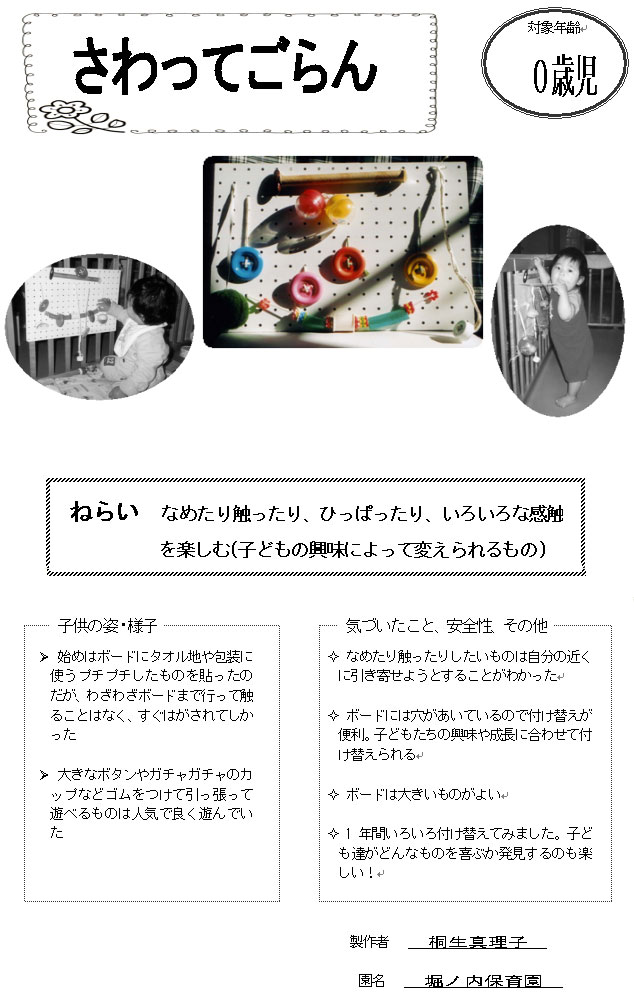 さわってごらん
対象年齢
0歳児
ねらい　なめたり触ったり、ひっぱったり、いろいろな感触
を楽しむ(子どもの興味によって変えられるもの)
子供の姿・様子
➢ 始めはボードにタオル地や包装に
使うプチプチしたものを貼ったの
だが、わざわざボードまで行って触
ることはなく、すぐはがされてしか
った
➢ 大きなボタンやガチャガチャのカ
ップなどゴムをつけて引っ張って
遊べるものは人気で良く遊んでい
た
気づいたこと、安全性、その他
✧ なめたり触ったりしたいものは自分の近く
に引き寄せようとすることがわかった
✧ ボードには穴があいているので付け替えが
便利。子どもたちの興味や成長に合わせて付
け替えられる
✧ ボードは大きいものがよい
✧ 1 年間いろいろ付け替えてみました。子ど
も達がどんなものを喜ぶか発見するのも楽
しい！
製作者　桐生真理子
園名　堀ノ内保育園